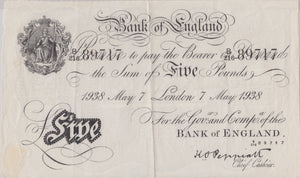 Bank of England
B/216 89717 B/216 89717
Promise to pay the Bearer on Demand
the Sum of Five Pounds
1938 May 7 London 7 May 1938
For the Govr. and Compa. of the
BANK OF ENGLAND.
Five
89717
K O Peppiatt
Chief Cashier.